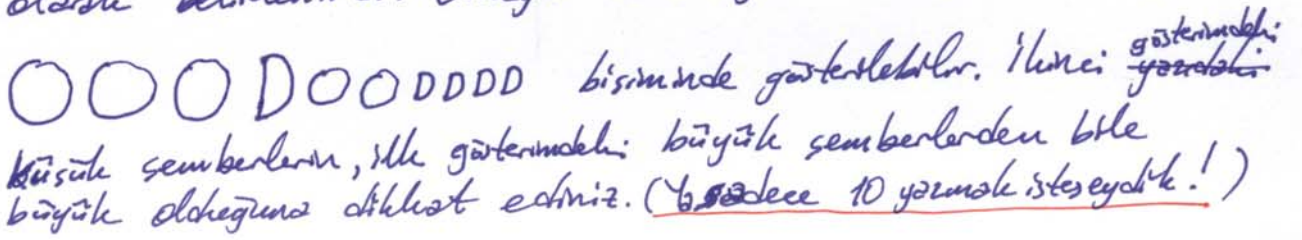 gösterimdeki
OOODOODDDD biçiminde gösterilebilir. İkinci yazıdaki
küçük çemberlerin, ilk gösterimdeki büyük çemberlerden bile
büyük olduğuna dikkat ediniz. (Ya sadece 10 yazmak isteseydik!)